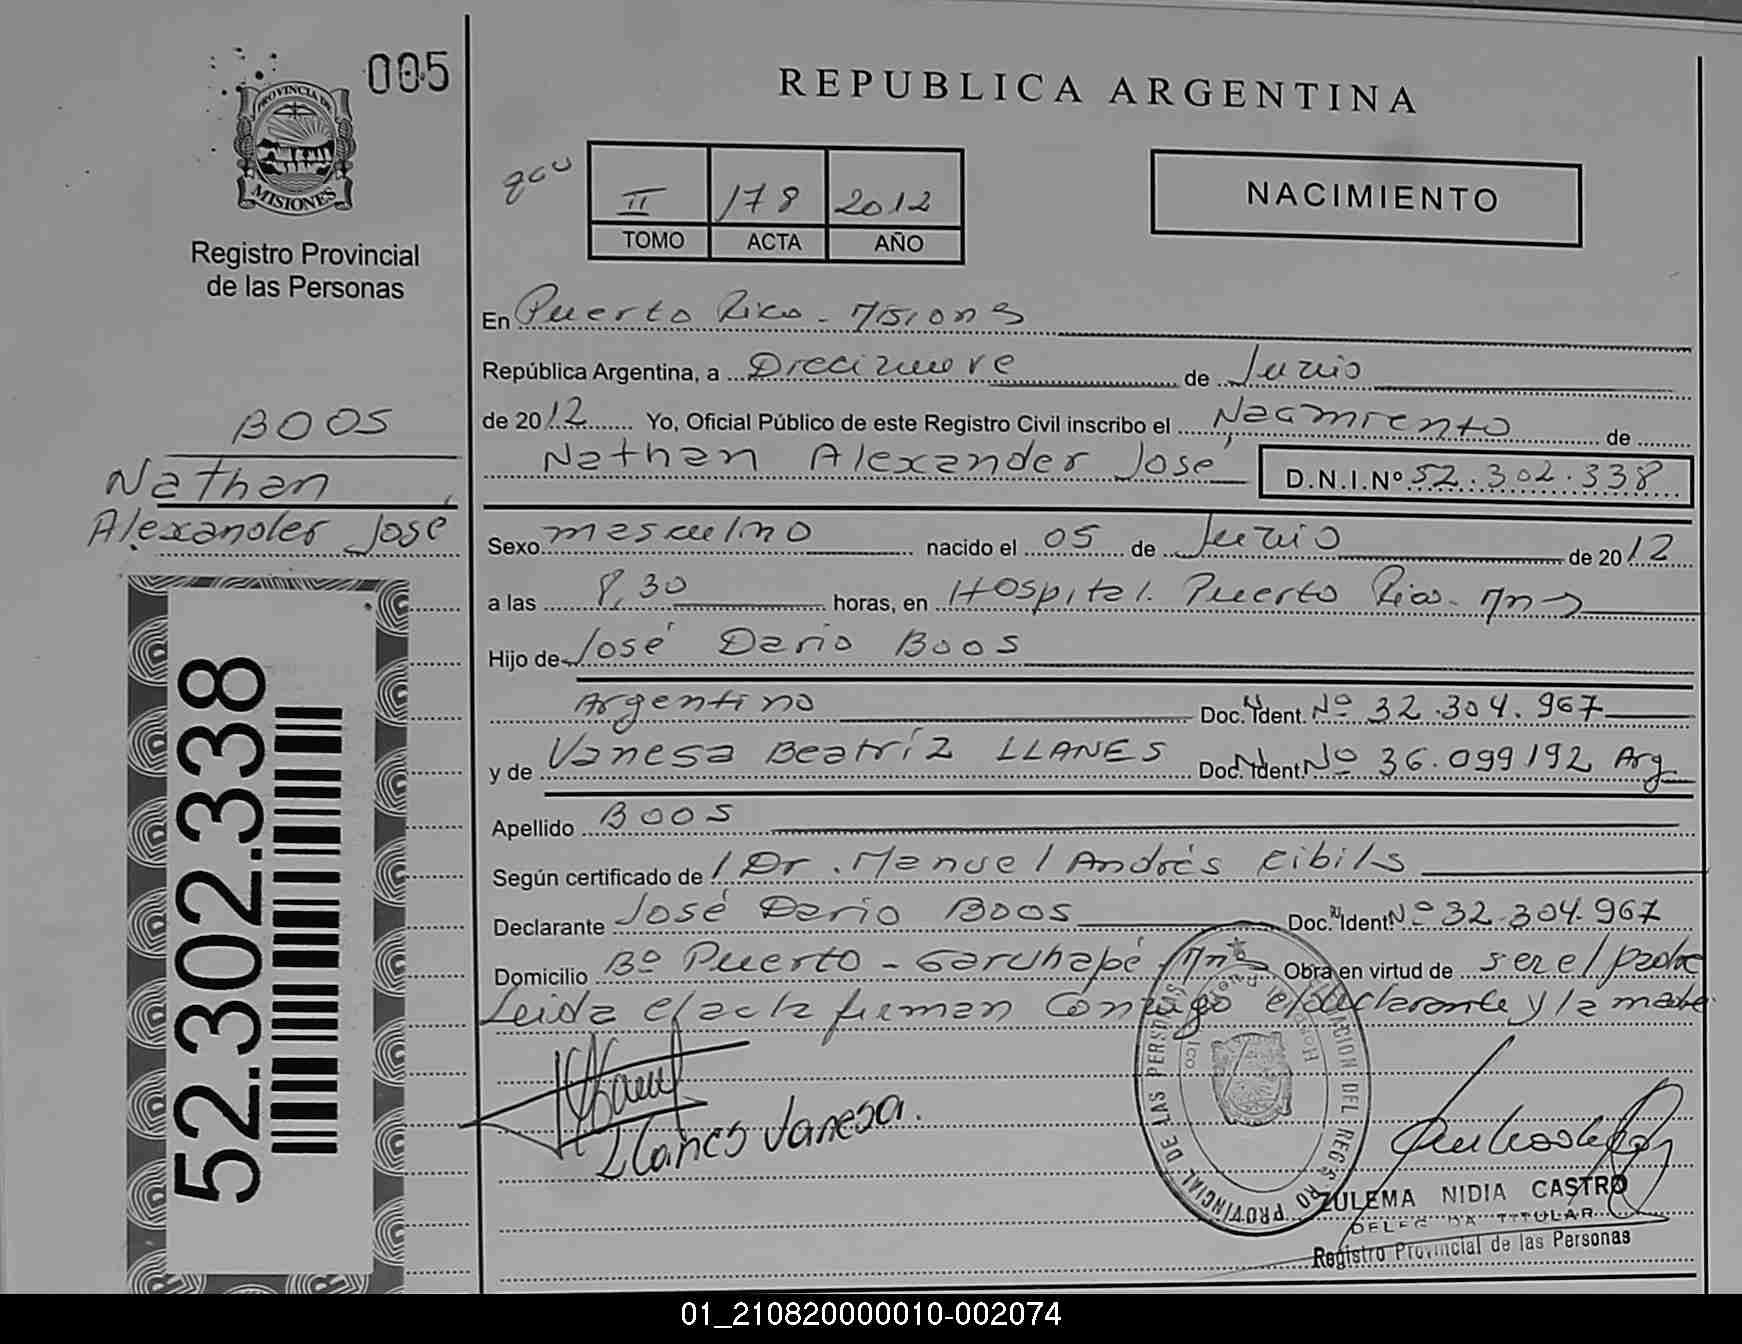 005
PROVINCIA DE
MISIONES
Registro Provincial
de las Personas
REPUBLICA ARGENTINA
II 178 2012
TOMO ACTA AÑO
NACIMIENTO
En Puerto Rico - Misiones
República Argentina, a Diecinueve de Junio
de 2012 Yo, Oficial Público de este Registro Civil inscribo el Nacimiento de
Nathan Alexander José D.N.I.Nº 52.302.338
BOOS
Nathan
Alexander José
Sexo masculino nacido el 05 de Junio de 2012
a las 8,30 horas, en Hospital. Puerto Rico - Mnes
Hijo de José Dario Boos
Argentino Doc. Ident. Nº 32.304.967
y de Vanesa Beatríz LLANES Doc. Ident. Nº 36.099192 Arg
Apellido BOOS
Según certificado de / Dr. Manuel Andrés Cibils
Declarante José Dario Boos Doc. Ident. Nº 32.304.967
Domicilio Bº Puerto - Garuhapé Mnes Obra en virtud de ser el padre
Leida el acta firman conmigo el declarante y la madre.
Llanes Vanesa.
52.302.338
ZULEMA NIDIA CASTRO
DELEGADA TITULAR
Registro Provincial de las Personas
01_210820000010-002074